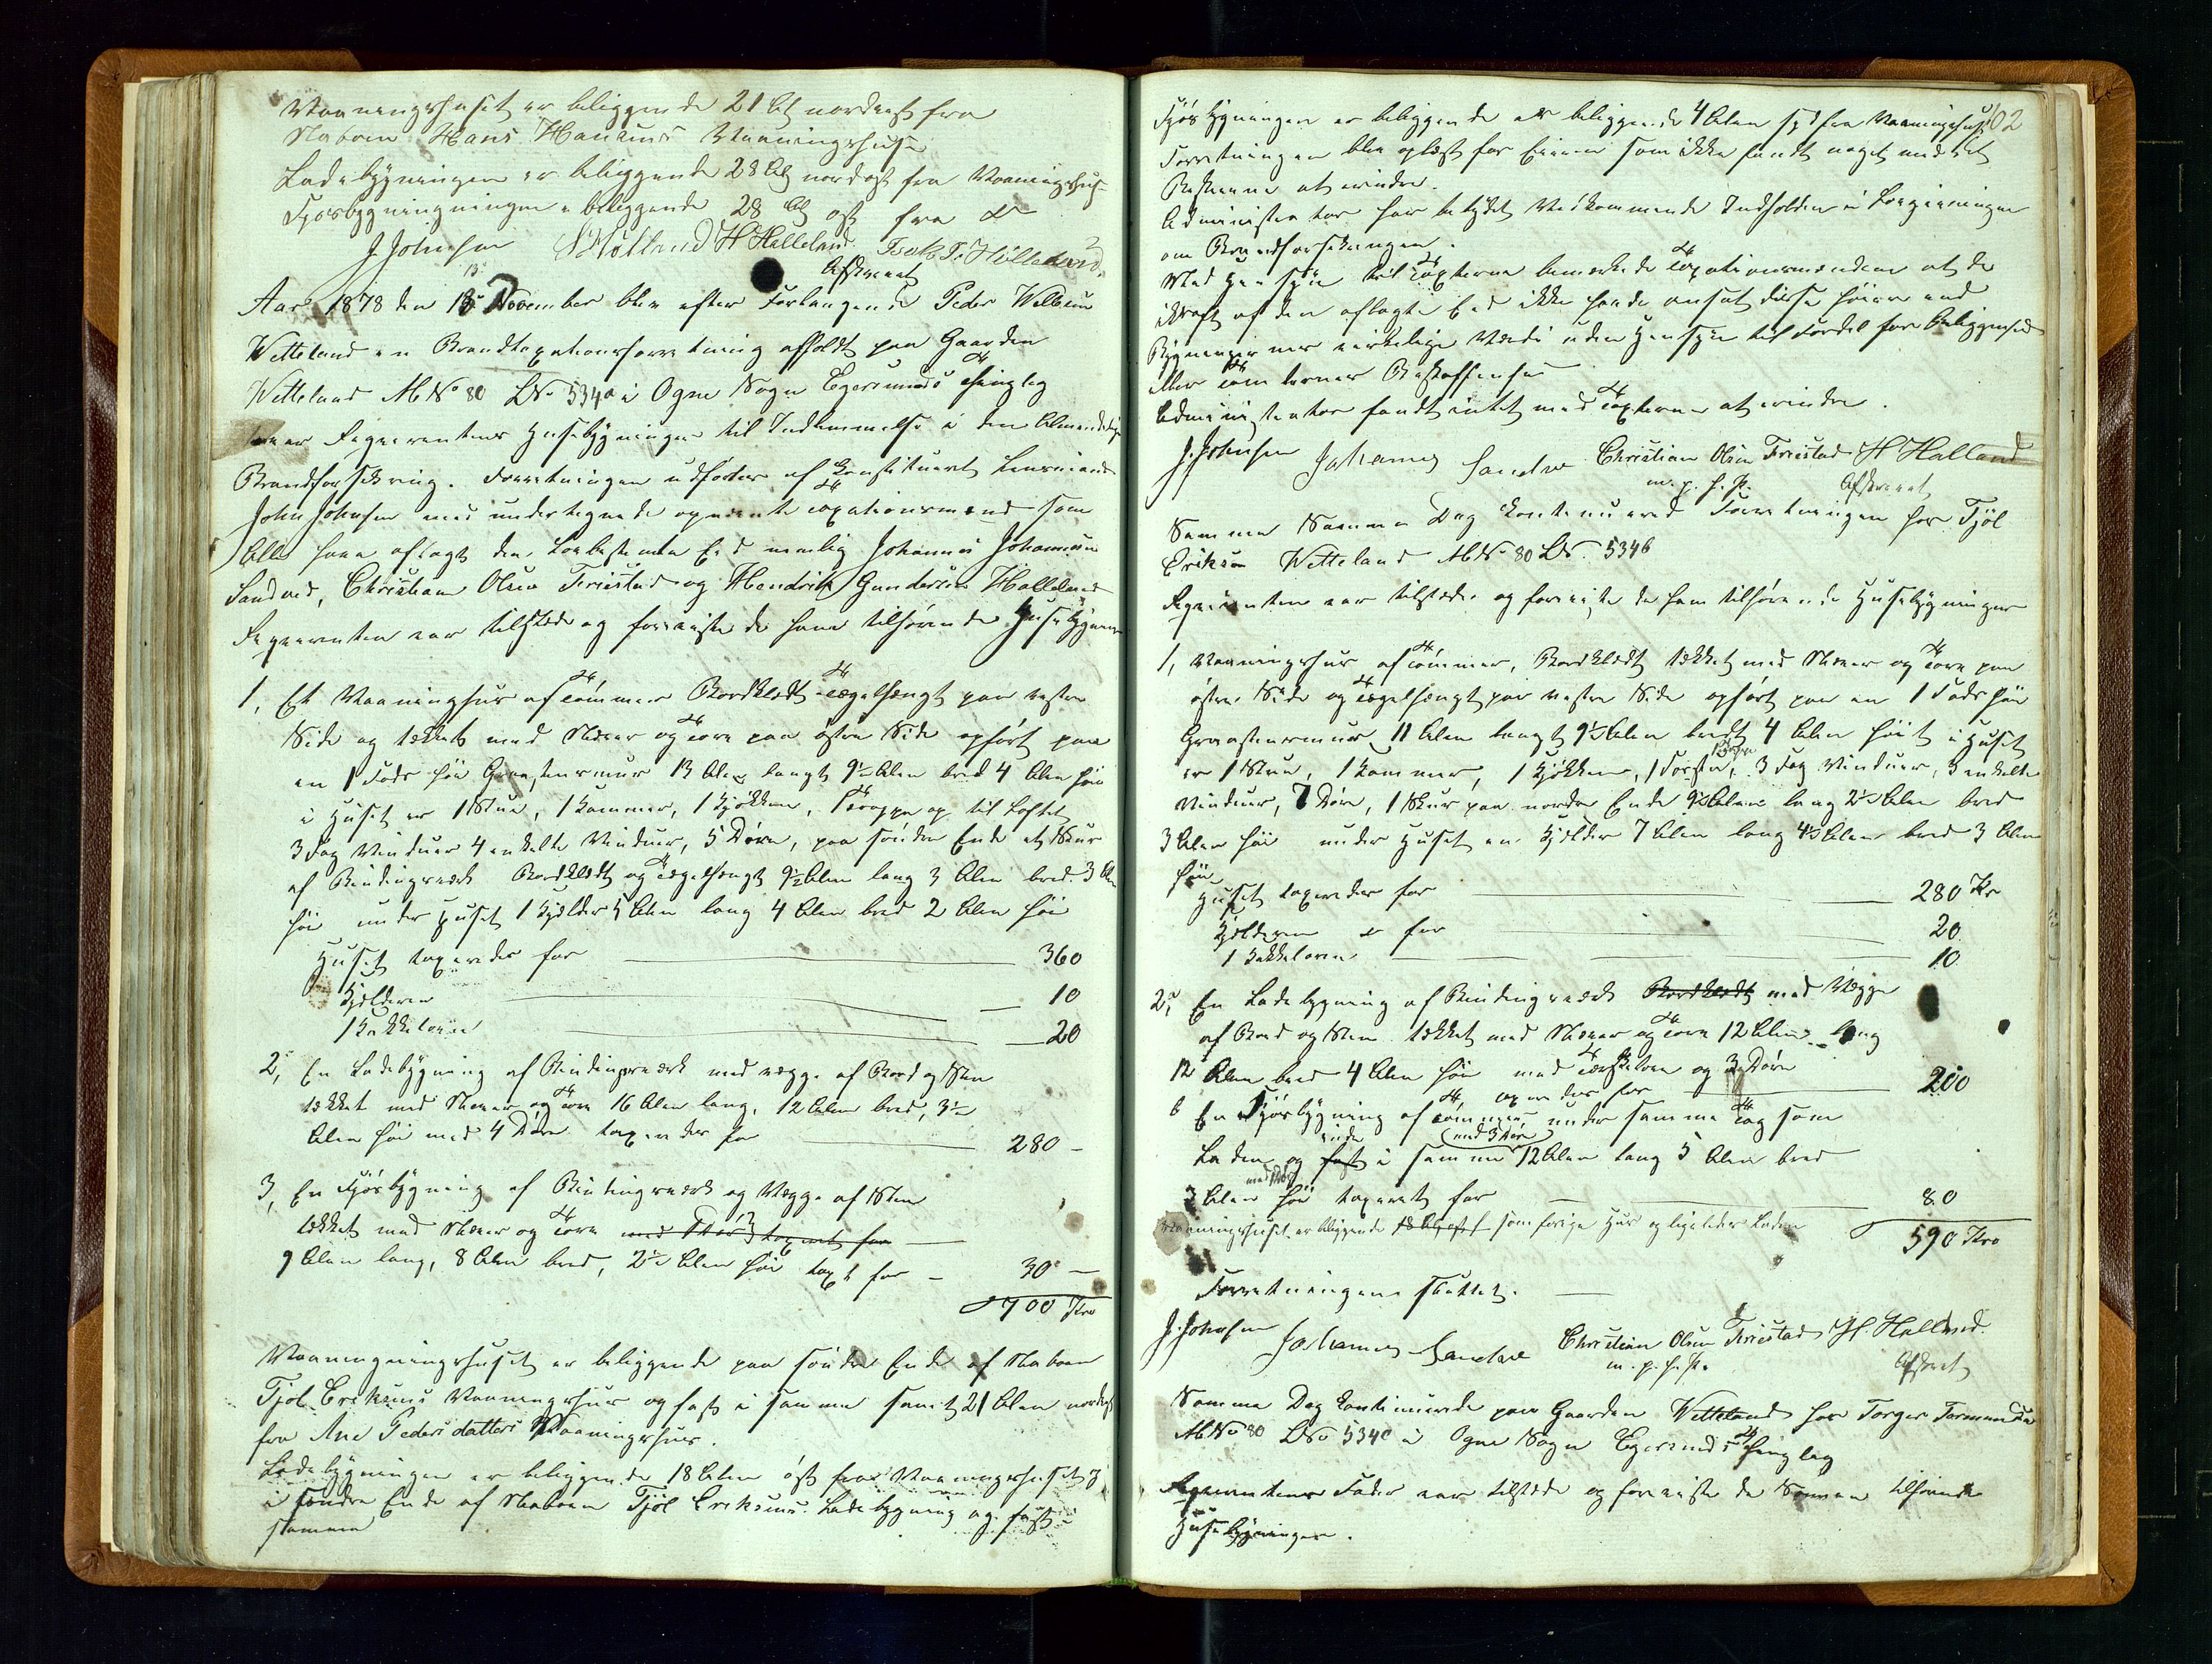 Vaaningshuset er beliggende 21 Al nordost fra
Naboen Hans Hansens Vaaningshuse
Ladebygningen er beliggende 28 Al nordost fra Vaaningshus
Fjøsbygningningen e beliggende 28 Al ost fra do
J Johnsen H Halleland
Afskrevet
Aar 1878 den 13 November blev efter Forlangende Peder
Witteland en Brandtaxationsforretning afholdt paa Gaarden
Witteland M No 80 LNo 534a i Ogne Sogn Egersunds Thinglag
over Reqvirentens Husebygninger til Indlemmelse i den Almindelige
Brandforsikring. Forretningen udførtes af Konstitueret Lensmand
John Johnsen med undertegnede opnævnte Taxationsmænd som
Alle have aflagt den Lovbestemte Ed nemlig Johannes Johannesen
Sandve, Christian Olsen Tveistad og Hendrik Gundersen Halleland
Reqvirenten var tilstede og foreviste de ham tilhørende Husebygninger
1, Et Vaaninghus af Tømmer Bordklædt Tægelhængt paa vestre
Side og tækket med Næver og Torv paa østre Side opført paa
en 1 Fods høi Graastensmur 13 Alen langt 9½ Alen bred 4 Alen høi
i Huset er 1 Stue, 1 Kammer, 1 Kjøkken, 1 Trappe op til Loftet
3 Fag Vinduer 4 enkelte Vinduer, 5 Døre, paa søndre Ende et Skur
af Bindingsværk Bordklædt og Tægelhængt 9½ Alen lang 3 Alen bred 3 Alen
høi under Huset 1 Kjælder 5 Alen lang 4 Alen bred 2 Alen høi
Huset taxeredes for 360
Kjelderen 10
1 Kakkelovn 20
2, En Ladebygning af Bindingsværk med vægge af Bord og Sten
tækket med Næver og Torv 16 Alen lang, 12 Alen bred, 3½
Alen høi med 4 Døre taxeredes for 280 -
3, En Fjøsbygning af Bindingværk og Vægge af Sten
tækket med Næver og Torv med Dør taxeret for
9 Alen lang, 8 Alen bred, 2½ Alen høi taxt for - 30 -
700 Kro
Vaaningningshuset er beliggende paa søndre Ende af Naboen
Tjøl Eriksens Vaaningshus og fast i samme samt 21 Alen nordost
fra Ane Pedersdatters Vaaningshus.
Ladebygningen er beliggende 18 Alen øst fra Vaaningshuset og
i søndre Ende af Naboen Tjøl Eriksens Ladebygning og fast i
samme
102
Fjøsbygningen er beliggende er beliggende 4 Alen fra Vaaningshuset
Forretningen blev oplæst for Eieren som ikke fandt noget mod det
Beskrevne at erindre.
Administrator har betydet Vedkommende Indholdet i Lovgivningen
om Brandforsikringen.
Med Hensyn til Taxterne bemærkede Taxationsmændene at de
ikraft af den aflagte Ed ikke havde ansat disse høiere end
Bygningernes virkelige Værdi uden Hensyn til Fordel for Beliggenhed
eller Tomternes Beskaffenhed
Administrator fandt intet mod Taxterne at erindre.
J. Johnsen Johannes Sandve Christian Olsen Tveistad H Halland
m. p. h. P. Afskrevet
Samme Samme Dag Kontinuered Forretningen hos Tjøl
Eriksen Witteland M No 80 LNo. 534b
Reqvirenten var tilstede og foreviste de ham tilhørende Husebygninger
1, Vaaningshus af Tømmer, Bordklædt tækket med Næver og Torv paa
østre Side og Tægelhængt paa vestre Side opført paa en 1 Fods høi
Graastensmur 11 Alen langt 9½ Alen bredt 4 Alen høit i Huset
er 1 Stue, 1 Kammer, 1 Kjøkken, 1 Forstue, Trappe 3 Fag Vinduer, 3 enkelte
Vinduer, 7 Døre, 1 Skur paa nordre Ende 9½ Alen lang 2½ Alen bred
3 Alen høi under Huset en Kjelder 7 Alen lang 4½ Alen bred 3 Alen
høi
Huset taxeredes for 280 Kr
Kjelderen do for 20
1 Kakkelovn 10
2, a En Ladebygning af Bindingsværk Bordklædt med Vægge
af Bord og Sten tækket med Næver og Torv 12 Alen lang
12 Alen bred 4 Alen høi med Tærskelove og 3 Døre
taxeredes for 200
b En Fjøsbygning af Tømmer, under samme Tag som
Laden og fast i samme med 3 Døre 12 Alen lang 5 Alen bred
3 Alen høi taxeret for 80
Vaaningshuset er beliggende som forige Hus og ligeledes Laden
590 Kro
Forretningen sluttet.
J. Johnsen Johannes Sandve Christian Olsen Tveistad H. Halland.
m. p. h. P. Afskrevet
Samme Dag Kontinuerede paa Gaarden Witteland hos Torger
M No 80 LNo 534c i Ogne Sogn Egersunds Thinglag
Reqvirentens Fader var tilstede og foreviste de Sønnen tilhørende
Husebygninger.